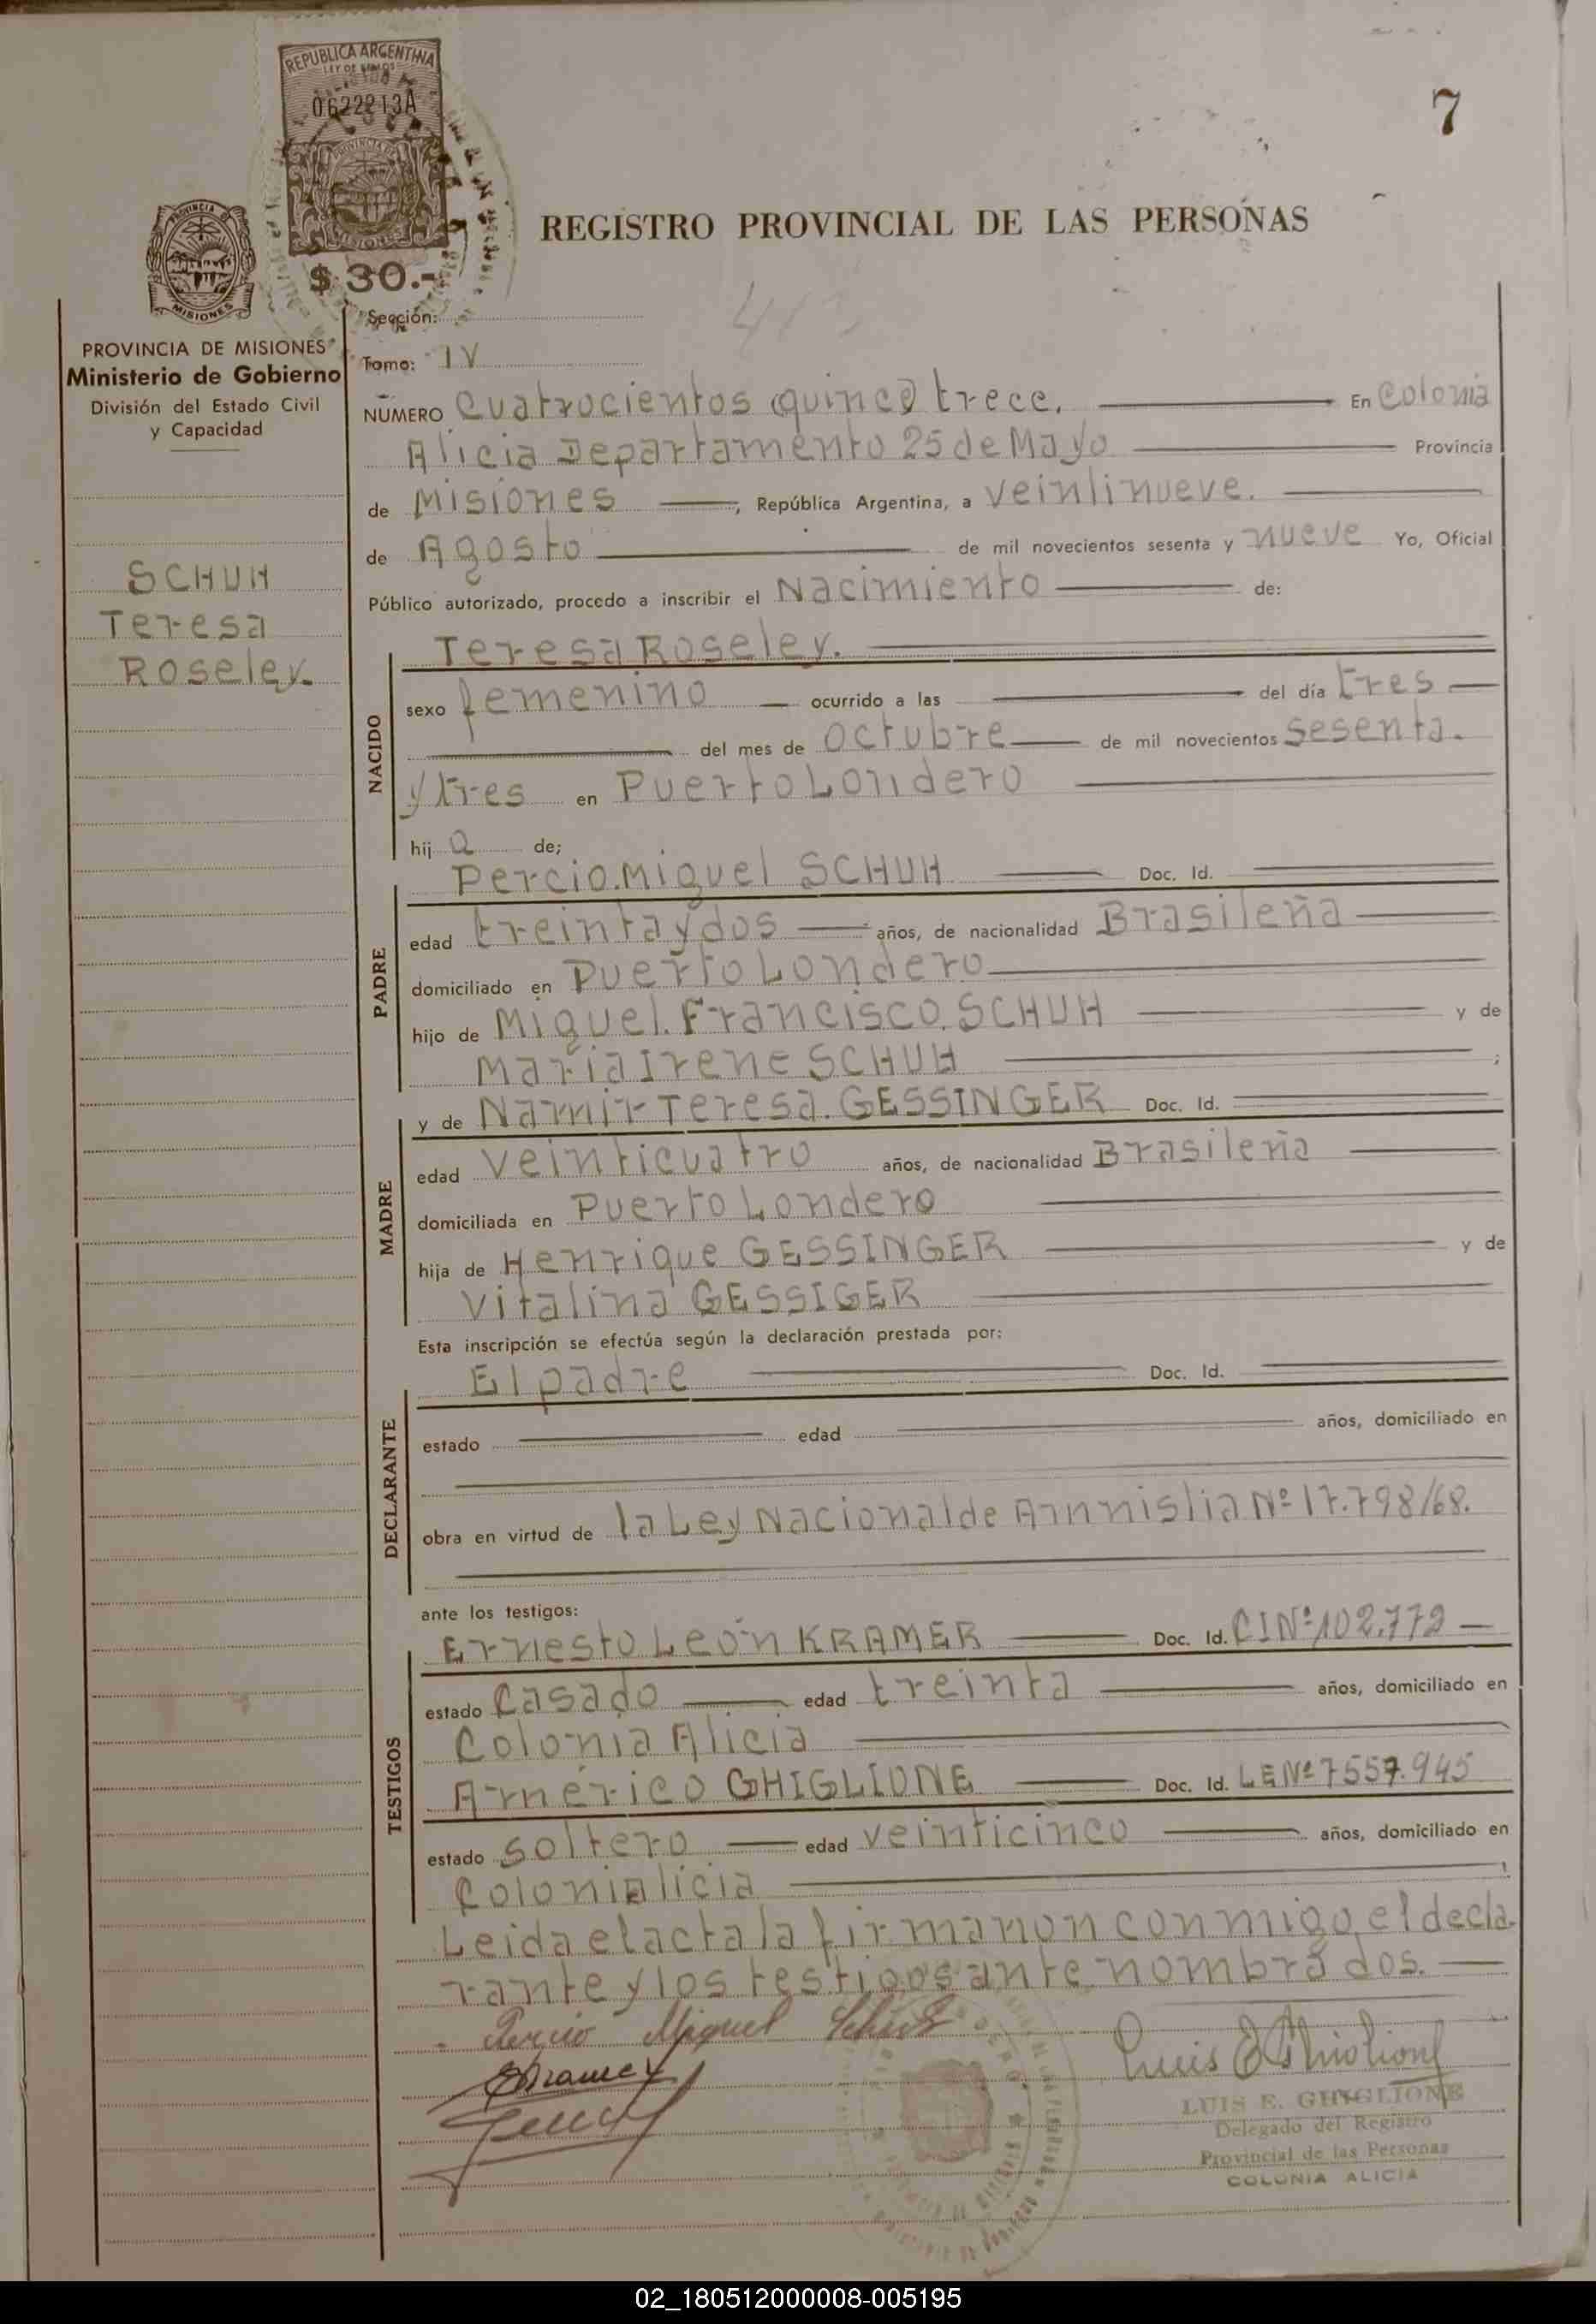 7
REPUBLICA ARGENTINA
LEY DE SELLOS
0622213A
PROVINCIA DE
MISIONES
$ 30.-
PROVINCIA DE
MISIONES
REGISTRO PROVINCIAL DE LAS PERSONAS
PROVINCIA DE MISIONES
Ministerio de Gobierno
División del Estado Civil
y Capacidad
SCHUH
Teresa
Roseley.
Sección:
413
Tomo: IV
NÚMERO Cuatrocientos (quince) trece. En Colonia
Alicia Departamento 25 de Mayo Provincia
de Misiones, República Argentina, a veintinueve.
de Agosto de mil novecientos sesenta y nueve Yo, Oficial
Público autorizado, procedo a inscribir el Nacimiento de:
NACIDO
Teresa Roseley.
sexo femenino ocurrido a las del día tres
del mes de Octubre de mil novecientos sesenta.
y tres en Puerto Londero
hij a de;
PADRE
Percio.Miguel SCHUH Doc. Id.
edad treinta y dos años, de nacionalidad Brasileña
domiciliado en Puerto Londero
hijo de Miguel.Francisco.SCHUH y de
Maria Irene SCHUH ;
MADRE
y de Namir Teresa.GESSINGER Doc. Id.
edad veinticuatro años, de nacionalidad Brasileña
domiciliada en Puerto Londero
hija de Henrique GESSINGER y de
Vitalina GESSIGER
Esta inscripción se efectúa según la declaración prestada por:
DECLARANTE
El padre Doc. Id.
estado edad años, domiciliado en
obra en virtud de la Ley Nacional de Amnistia Nº 17.798/68.
ante los testigos:
TESTIGOS
Ernesto León KRAMER Doc. Id. CI Nº 102.772
estado Casado edad treinta años, domiciliado en
Colonia Alicia
Américo GHIGLIONE Doc. Id. LE Nº 7557.945
estado soltero edad veinticinco años, domiciliado en
Colonialicia
Leida el acta la firmaron conmigo, el decla-
rante y los testigos ante nombrados.
Percio Miguel Schuh
EKramer
Luis E Ghiglione
LUIS E. GHIGLIONE
Delegado del Registro
Provincial de las Personas
COLONIA ALICIA
02_180512000008-005195